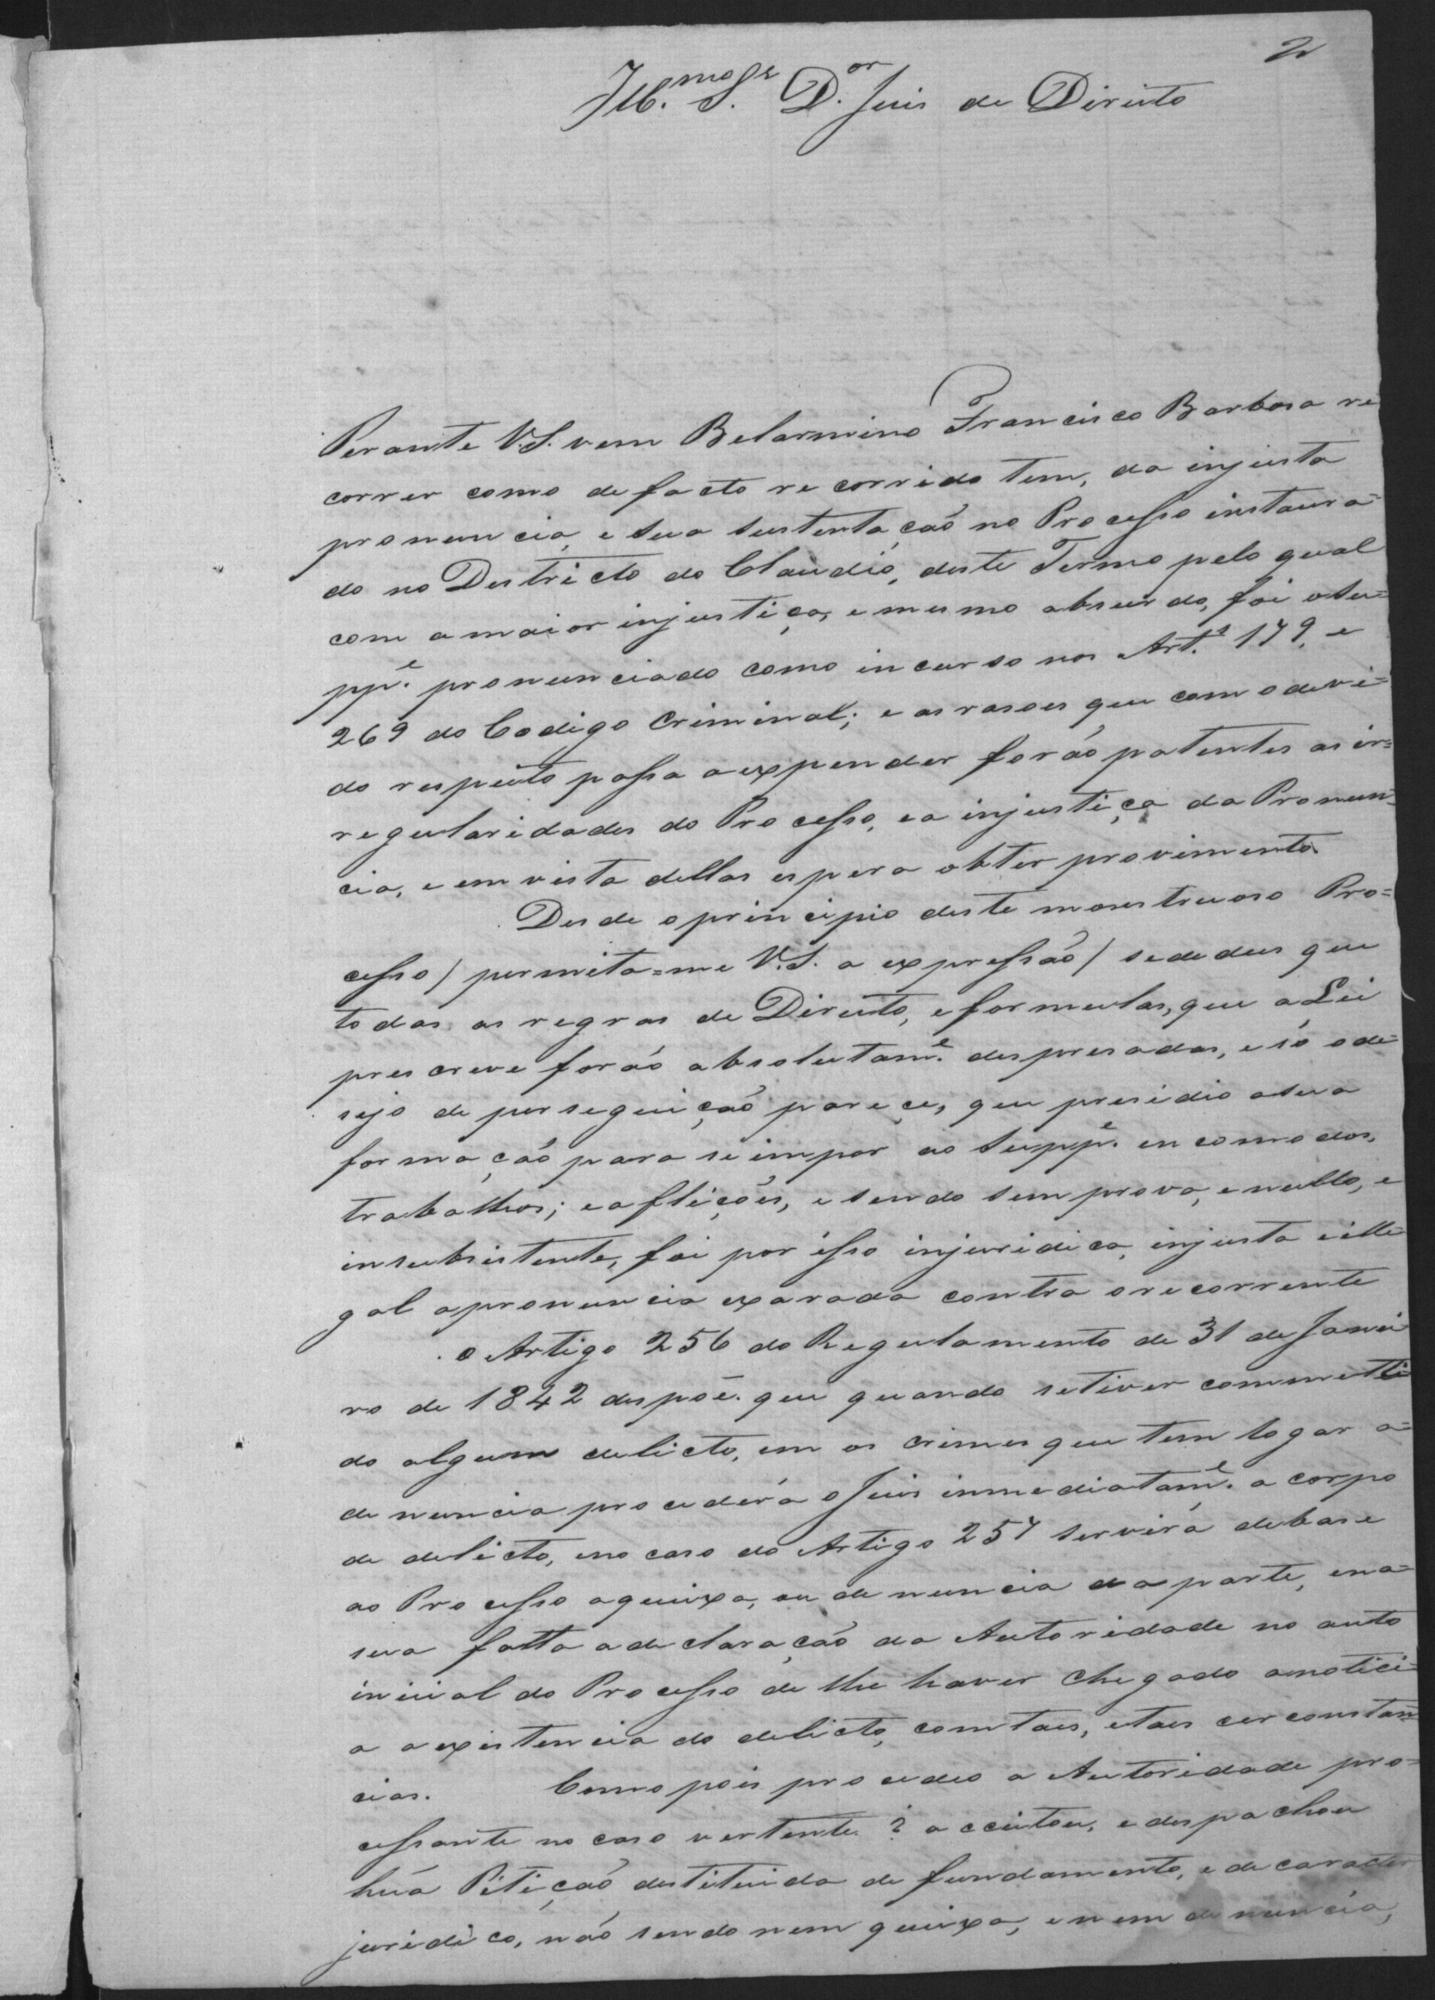 2
Ill.mo Sr. D.or Juis de Direito
Perante V.S. vem Belarmino Francisco Barbosa re
correr como de facto recorrido tem, da injusta
pronuncia, e sua sustentação no Processo instaura=
do no Destricto do Claudio, deste Termo pelo qual
com a maior injustiça, e mesmo absurdo, foi o su=
ppe. pronunciado como incurso nos Art.s 179, e
269 do Codigo Criminal; e as rasoes que com o devi=
do respeito passa a expender farão patentes as ir=
regularidades do Processo, e a injustiça da Pronun=
cia, e em vista dellas espera obter provimento
Desde o principio deste monstruoso Pro=
cesso / permita=me V.S. a expressão / se dedus que
todas as regras de Direito, e formulas, que a Lei
prescreve forão absolutame. despresadas, e só o de=
sejo de perseguição parece, que presidio a sua
formação para se impor ao suppe. encomodos,
trabalhos; e aflições, e sendo sem prova, e nullo, e
insubsistente, foi por isso injuridica, injusta e ille=
gal a pronuncia exarada contra o recorrente
O Artigo 256 do Regulamento de 31 de Janei
ro de 1842 despoẽ. que quando se tiver commetti
do algum delicto, em os crimes que tem logar a=
denuncia procederá o Juis immediatame. a corpo
de delicto, e no caso do Artigo 257 servirá de base
ao Processo a queixa, ou denuncia da parte, e na=
sua falta a declaração da Autoridade no auto
inicial do Processo de lhe haver chegado a notici=
a a existencia do delicto, com taes, e taes circonstan=
cias. Como pois procedeo a Autoridade pro=
cessante no caso vertente? acceitou, e despachou
huã Petição destituida de fundamento, e de caracter
juridico, não sendo nem queixa, e nem denuncia,